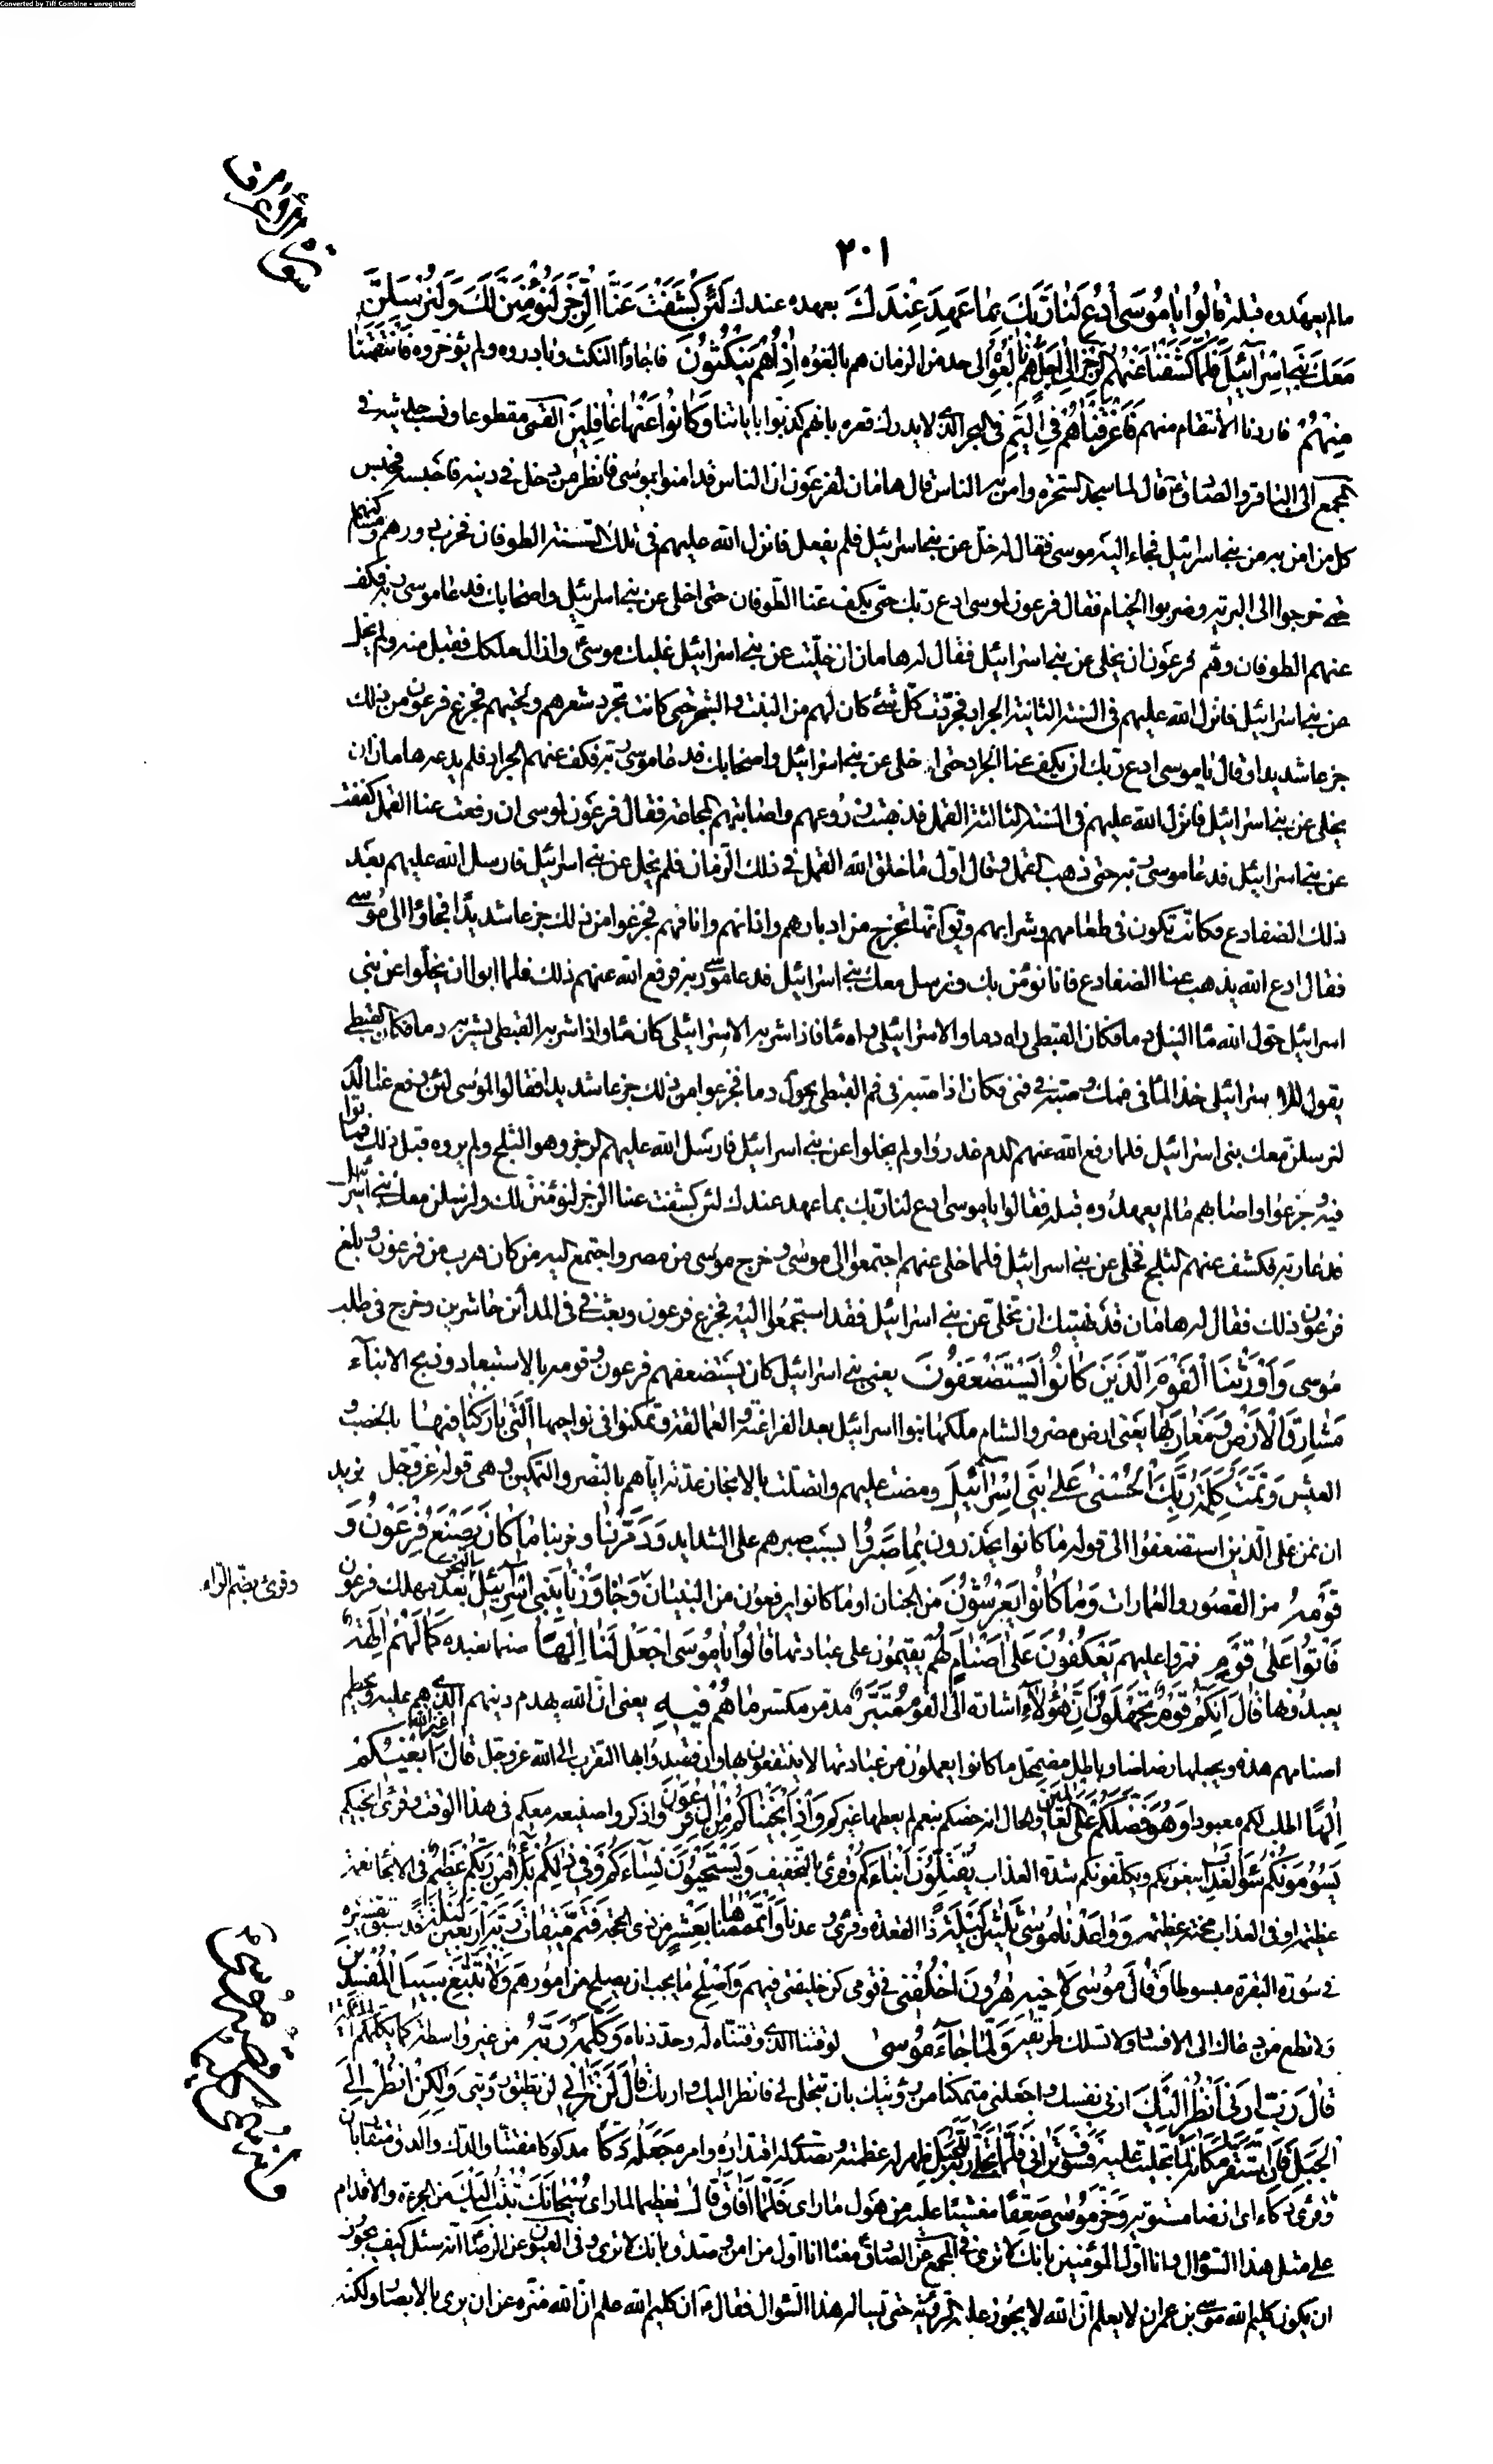 Converted by Tiff Combine - unregistered
سورة الأعراف
٢٠١
ما لم يعهدوه قبله قالُوا يا مُوسَى ادْعُ لَنا رَبَّكَ بِما عَهِدَ عِنْدَكَ بعهده عندك لَئِنْ كَشَفْتَ عَنَّا الرِّجْزَ لَنُؤْمِنَنَّ لَكَ وَلَنُرْسِلَنَّ
مَعَكَ بَنِي إِسْرائِيلَ فَلَمَّا كَشَفْنا عَنْهُمُ الرِّجْزَ إِلى أَجَلٍ هُمْ بالِغُوهُ الى حد من الزمان هم بالغوه إِذا هُمْ يَنْكُثُونَ فاجاؤا النكث وبادروه ولم يؤخروه فَانْتَقَمْنا
مِنْهُمْ فاردنا الانتقام منهم فَأَغْرَقْناهُمْ فِي الْيَمِّ في البحر الذي لا يدرك قعره بانهم كذبوا باياتنا وَكانُوا عَنْها غافِلِينَ القمى مقطوعا ونسب حديثه في
المجمع الى الباقر والصادق ع قال لما سجد السحرة وامن به الناس قال هامان لفرعون ان الناس قد امنوا بموسى فانظر من دخل في دينه فاحبسه فحبس
كل من امن به من بني اسرائيل فجاء اليه موسى فقال له خل عن بني اسرائيل فلم يفعل فانزل الله عليهم في تلك السنة الطوفان فخرب دورهم ومساكنهم
حتى خرجوا الى البرية وضربوا الخيام فقال فرعون لموسى ادع ربك حتى يكف عنا الطوفان حتى اخلى عن بني اسرائيل واصحابك فدعا موسى ربه فكف
عنهم الطوفان وهم فرعون ان يخلى عن بني اسرائيل فقال له هامان ان خليت عن بني اسرائيل غلبك موسى وازال ملكك فقبل منه ولم يخل
عن بني اسرائيل فانزل الله عليهم في السنة الثانية الجراد فجردت كل شئ كان لهم من النبت والشجر حتى كانت تجرد شعرهم ولحيتهم فجزع فرعون من ذلك
جزعا شديدا وقال يا موسى ادع ربك ان يكف عنا الجراد حتى اخلى عن بني اسرائيل واصحابك فدعا موسى ربه فكف عنهم الجراد فلم يدعه هامان ان
يخلى عن بني اسرائيل فانزل الله عليهم في السنة الثالثة القمل فذهبت زروعهم واصابتهم المجاعة فقال فرعون لموسى ان رفعت عنا القمل كففت
عن بني اسرائيل فدعا موسى ربه حتى ذهب القمل وقال اول ما خلق الله القمل في ذلك الزمان فلم يخل عن بني اسرائيل فارسل الله عليهم بعد
ذلك الضفادع فكانت تكون في طعامهم وشرابهم ويق انها تخرج من ادبارهم واذانهم وانافهم فجزعوا من ذلك جزعا شديدا فجاؤا الى موسى
فقال ادع الله يذهب عنا الضفادع فانا نؤمن بك ونرسل معك بني اسرائيل فدعا موسى ربه فرفع الله عنهم ذلك فلما ابوا ان يخلوا عن بني
اسرائيل حول الله ماء النيل دما فكان القبطي راه دما والاسرائيلي راه ماء فاذا شربه الاسرائيلي كان ماء واذا شربه القبطي يشربه دما فكان القبطي
يقول للاسرائيلي خذ الماء في فمك وصبه في فمي فكان اذا صبه في فم القبطي يحول دما فجزعوا من ذلك جزعا شديدا فقالوا لموسى لئن رفع عنا الدم
لنرسلن معك بني اسرائيل فلما رفع الله عنهم الدم غدروا ولم يخلوا عن بني اسرائيل فارسل الله عليهم الرجز وهو الثلج ولم يروه قبل ذلك فماتوا
فيه وجزعوا واصابهم ما لم يعهدوه قبله فقالوا يا موسى ادع لنا ربك بما عهد عندك لئن كشفت عنا الرجز لنؤمنن لك ولنرسلن معك بني اسرائيل
فدعا ربه فكشف عنهم الثلج فخلى عن بني اسرائيل فلما خلى عنهم اجتمعوا الى موسى وخرج موسى من مصر واجتمع اليه من كان هرب من فرعون وبلغ
فرعون ذلك فقال له هامان قد نهيتك ان تخلى عن بني اسرائيل فقد استجمعوا اليه فجزع فرعون وبعث في المدائن حاشرين وخرج في طلب
موسى وَأَوْرَثْنَا الْقَوْمَ الَّذِينَ كانُوا يُسْتَضْعَفُونَ يعني بني اسرائيل كان يستضعفهم فرعون وقومه بالاستبعاد وذبح الابناء
مَشارِقَ الْأَرْضِ وَمَغارِبَهَا يعني ارض مصر والشام ملكها بنوا اسرائيل بعد الفراعنة والعمالقة وتمكنوا في نواحيها الَّتِي بارَكْنا فِيها بالخصب و
العيش وَتَمَّتْ كَلِمَتُ رَبِّكَ الْحُسْنى عَلى بَنِي إِسْرائِيلَ ومضت عليهم واتصلت بالانجاز عدته اياهم بالنصر والتمكين وهي قوله عز وجل نريد
ان نمن على الذين استضعفوا الى قوله ما كانوا يحذرون بِما صَبَرُوا بسبب صبرهم على الشدايد وَدَمَّرْنا وخربنا ما كانَ يَصْنَعُ فِرْعَوْنُ وَ
قَوْمُهُ من القصور والعمارات وَما كانُوا يَعْرِشُونَ من الجنان او ما كانوا يرفعون من البنيان وَجاوَزْنا بِبَنِي إِسْرائِيلَ الْبَحْرَ بعد مهلك فرعون
وقرئ بضم الراء
فَأَتَوْا عَلى قَوْمٍ فمروا عليهم يَعْكُفُونَ عَلى أَصْنامٍ لَهُمْ يقيمون على عبادتها قالُوا يا مُوسَى اجْعَلْ لَنا إِلهاً صنما نعبده كَما لَهُمْ آلِهَةٌ
يعبدونها قالَ إِنَّكُمْ قَوْمٌ تَجْهَلُونَ إِنَّ هؤُلاءِ اشارة الى القوم مُتَبَّرٌ مدمر مكسر ما هُمْ فِيهِ يعني ان الله يهدم دينهم الذي هم عليه ويحطم
اصنامهم هذه ويجعلها رضاضا وباطل مضمحل ما كانوا يعملون من عبادتها لا ينتفعون بها وان قصدوا بها التقرب الى الله عز وجل قالَ أَغَيْرَ اللَّهِ أَبْغِيكُمْ
إِلهاً اطلب لكم معبودا وَهُوَ فَضَّلَكُمْ عَلَى الْعالَمِينَ والحال انه خصكم بنعم لم يعطها غيركم وَإِذْ أَنْجَيْناكُمْ مِنْ آلِ فِرْعَوْنَ واذكروا صنيعه معكم في هذا الوقت وقرئ انجيكم
يَسُومُونَكُمْ سُوءَ الْعَذابِ يبغونكم ويكلفونكم شدة العذاب يُقَتِّلُونَ أَبْناءَكُمْ وقرئ بالتخفيف وَيَسْتَحْيُونَ نِساءَكُمْ وَفِي ذلِكُمْ بَلاءٌ مِنْ رَبِّكُمْ عَظِيمٌ في الانجاء نعمة
عظيمة او في العذاب محنة عظيمة وَواعَدْنا مُوسى ثَلاثِينَ لَيْلَةً ذا القعدة وقرئ وعدنا وَأَتْمَمْناها بِعَشْرٍ من ذي الحجة فَتَمَّ مِيقاتُ رَبِّهِ أَرْبَعِينَ لَيْلَةً قد سبق تفسيره
في سورة البقرة مبسوطا وَقالَ مُوسى لِأَخِيهِ هارُونَ اخْلُفْنِي فِي قَوْمِي كن خليفتي فيهم وَأَصْلِحْ ما يجب ان يصلح من امورهم وَلا تَتَّبِعْ سَبِيلَ الْمُفْسِدِينَ
ولا تطع من دعاك الى الافساد ولا تسلك طريقه وَلَمَّا جاءَ مُوسى لِمِيقاتِنا لوقتنا الذي وقتناه له وحددناه وَكَلَّمَهُ رَبُّهُ من غير واسطة كما يكلم الملائكة
قالَ رَبِّ أَرِنِي أَنْظُرْ إِلَيْكَ ارني نفسك واجعلني متمكنا من رؤيتك بان تتجلى لي فانظر اليك واريك قالَ لَنْ تَرانِي لن تطيق رؤيتي وَلكِنِ انْظُرْ إِلَى
الْجَبَلِ فَإِنِ اسْتَقَرَّ مَكانَهُ لما تجليت عليه فَسَوْفَ تَرانِي فَلَمَّا تَجَلَّى رَبُّهُ لِلْجَبَلِ ظهر له عظمته وتصدى له اقتداره وامره جَعَلَهُ دَكًّا مدكوكا مفتتا والدك والدق متقاربان
وقرئ دكاء اي ارضا مستوية وَخَرَّ مُوسى صَعِقاً مغشيا عليه من هول ما راى فَلَمَّا أَفاقَ قالَ تعظيما لما راى سُبْحانَكَ تُبْتُ إِلَيْكَ من الجرءة والاقدام
على مثل هذا السؤال وانا اول المؤمنين بانك لا ترى في المجمع عن الصادق ع معناه انا اول من امن وصدق بانك لا ترى وفي العيون عن الرضا ع انه سئل كيف يجوز
ان يكون كليم الله موسى بن عمران لا يعلم ان الله لا يجوز عليه الرؤية حتى يسأله هذا السؤال فقال ع ان كليم الله علم ان الله منزه عن ان يرى بالابصار ولكنه